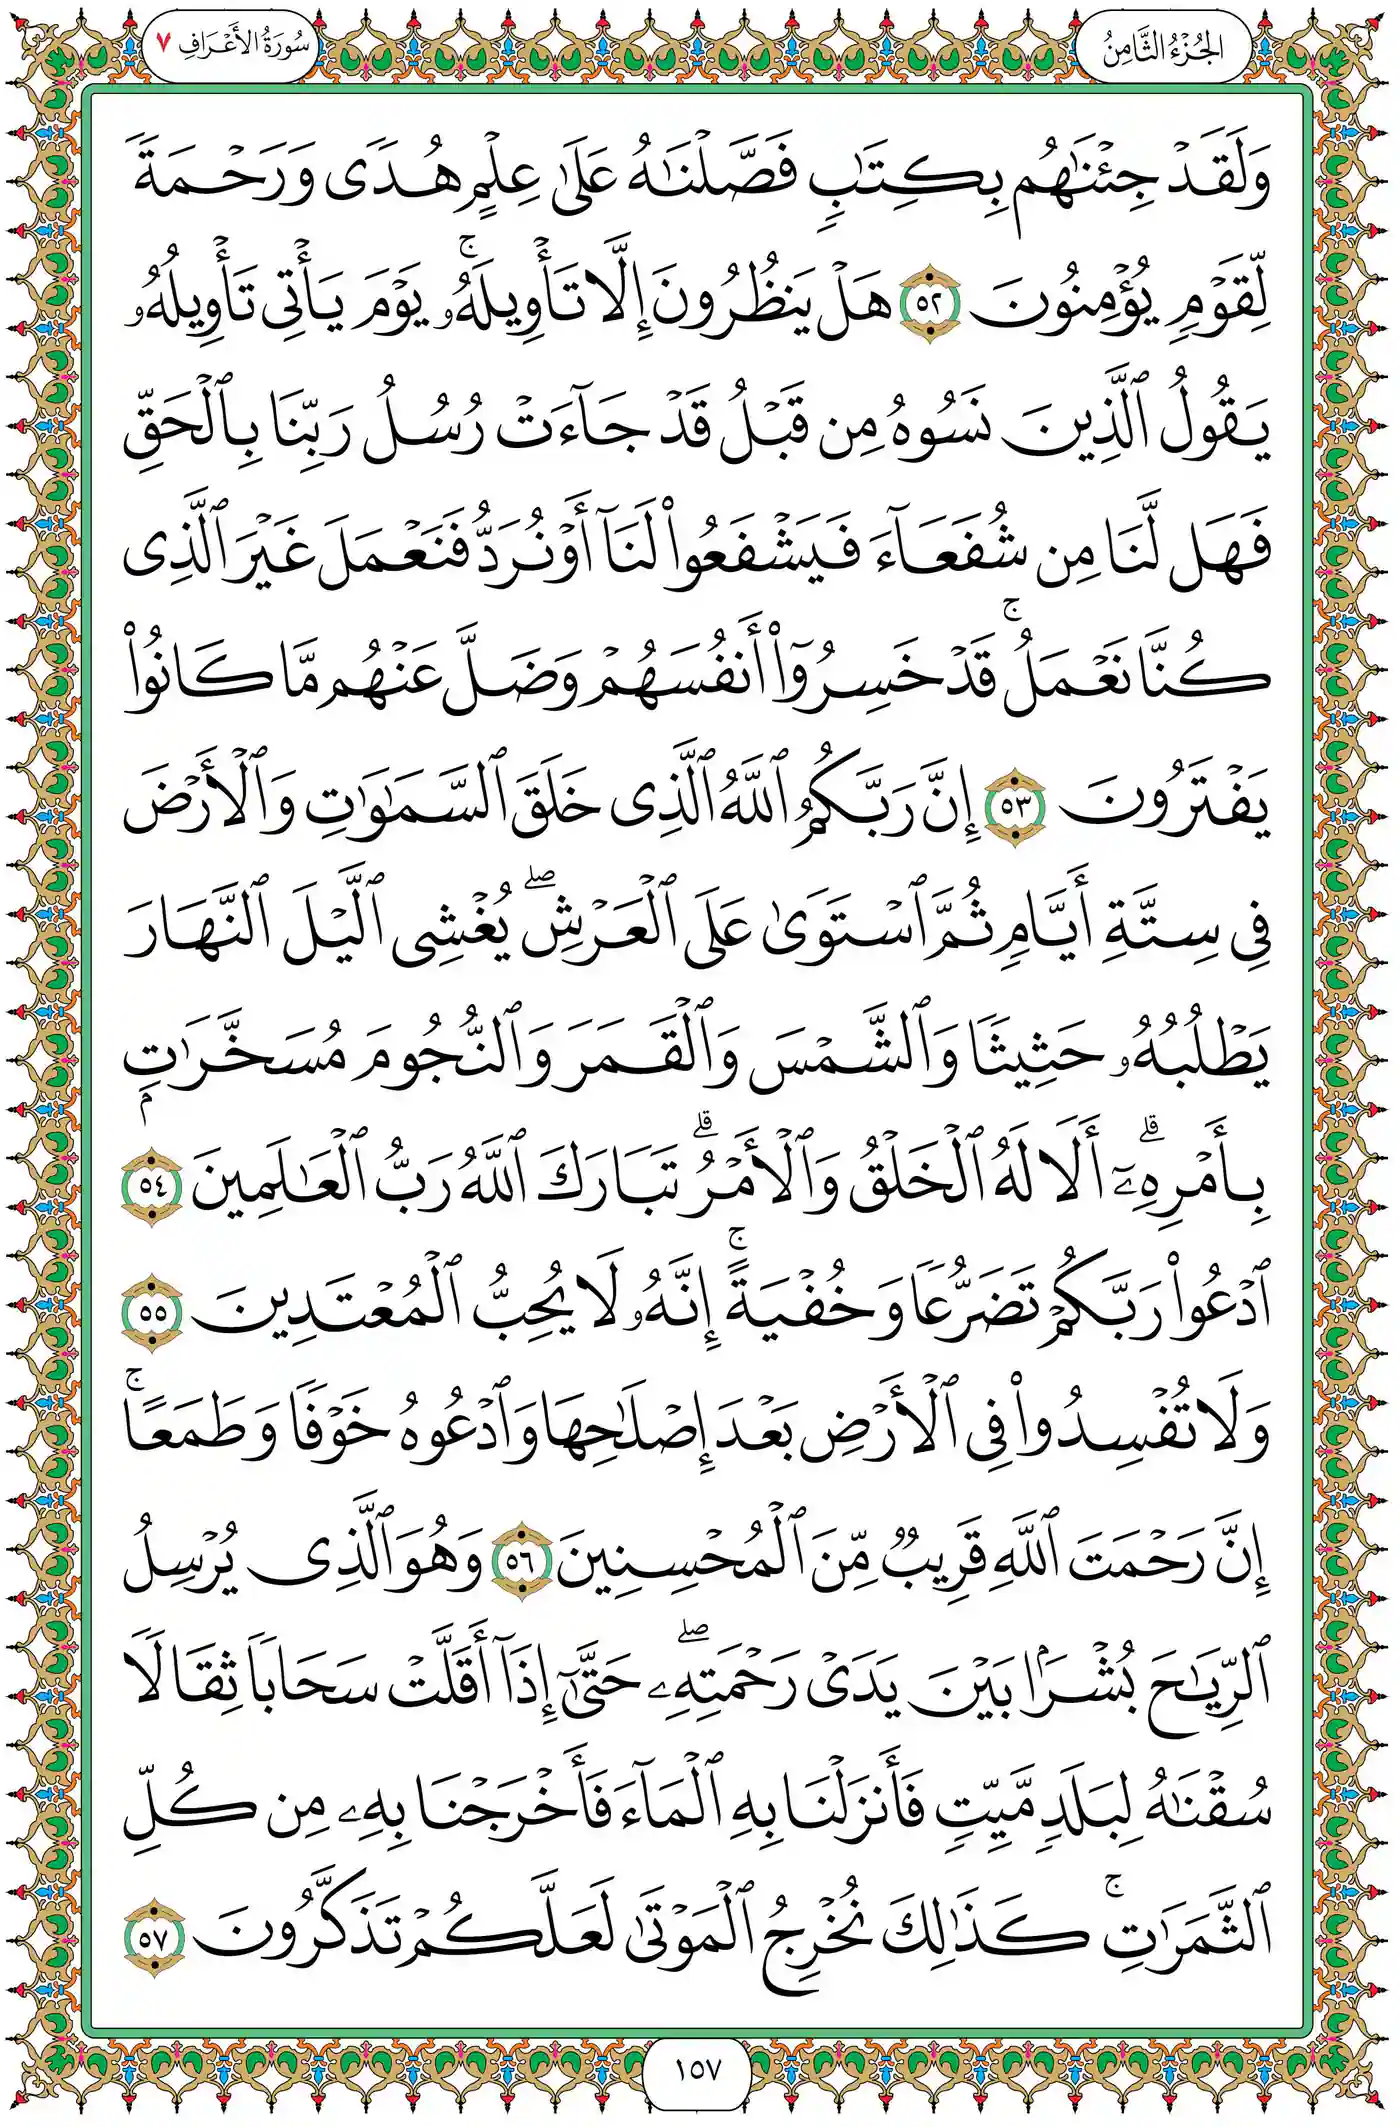 الجُزْءُ الثَّامِنُ
سُورَةُ الأَعْرَافِ ٧
وَلَقَدْ جِئْنَٰهُم بِكِتَٰبٍ فَصَّلْنَٰهُ عَلَىٰ عِلْمٍ هُدًى وَرَحْمَةً
لِّقَوْمٍ يُؤْمِنُونَ ٥٢ هَلْ يَنظُرُونَ إِلَّا تَأْوِيلَهُۥ ۚ يَوْمَ يَأْتِى تَأْوِيلُهُۥ
يَقُولُ ٱلَّذِينَ نَسُوهُ مِن قَبْلُ قَدْ جَآءَتْ رُسُلُ رَبِّنَا بِٱلْحَقِّ
فَهَل لَّنَا مِن شُفَعَآءَ فَيَشْفَعُوا۟ لَنَآ أَوْ نُرَدُّ فَنَعْمَلَ غَيْرَ ٱلَّذِى
كُنَّا نَعْمَلُ ۚ قَدْ خَسِرُوٓا۟ أَنفُسَهُمْ وَضَلَّ عَنْهُم مَّا كَانُوا۟
يَفْتَرُونَ ٥٣ إِنَّ رَبَّكُمُ ٱللَّهُ ٱلَّذِى خَلَقَ ٱلسَّمَٰوَٰتِ وَٱلْأَرْضَ
فِى سِتَّةِ أَيَّامٍ ثُمَّ ٱسْتَوَىٰ عَلَى ٱلْعَرْشِ ۖ يُغْشِى ٱلَّيْلَ ٱلنَّهَارَ
يَطْلُبُهُۥ حَثِيثًا وَٱلشَّمْسَ وَٱلْقَمَرَ وَٱلنُّجُومَ مُسَخَّرَٰتٍۭ
بِأَمْرِهِۦٓ ۗ أَلَا لَهُ ٱلْخَلْقُ وَٱلْأَمْرُ ۗ تَبَارَكَ ٱللَّهُ رَبُّ ٱلْعَٰلَمِينَ ٥٤
ٱدْعُوا۟ رَبَّكُمْ تَضَرُّعًا وَخُفْيَةً ۚ إِنَّهُۥ لَا يُحِبُّ ٱلْمُعْتَدِينَ ٥٥
وَلَا تُفْسِدُوا۟ فِى ٱلْأَرْضِ بَعْدَ إِصْلَٰحِهَا وَٱدْعُوهُ خَوْفًا وَطَمَعًا ۚ
إِنَّ رَحْمَتَ ٱللَّهِ قَرِيبٌ مِّنَ ٱلْمُحْسِنِينَ ٥٦ وَهُوَ ٱلَّذِى يُرْسِلُ
ٱلرِّيَٰحَ بُشْرًۢا بَيْنَ يَدَىْ رَحْمَتِهِۦ ۖ حَتَّىٰٓ إِذَآ أَقَلَّتْ سَحَابًا ثِقَالًا
سُقْنَٰهُ لِبَلَدٍ مَّيِّتٍ فَأَنزَلْنَا بِهِ ٱلْمَآءَ فَأَخْرَجْنَا بِهِۦ مِن كُلِّ
ٱلثَّمَرَٰتِ ۚ كَذَٰلِكَ نُخْرِجُ ٱلْمَوْتَىٰ لَعَلَّكُمْ تَذَكَّرُونَ ٥٧
١٥٧